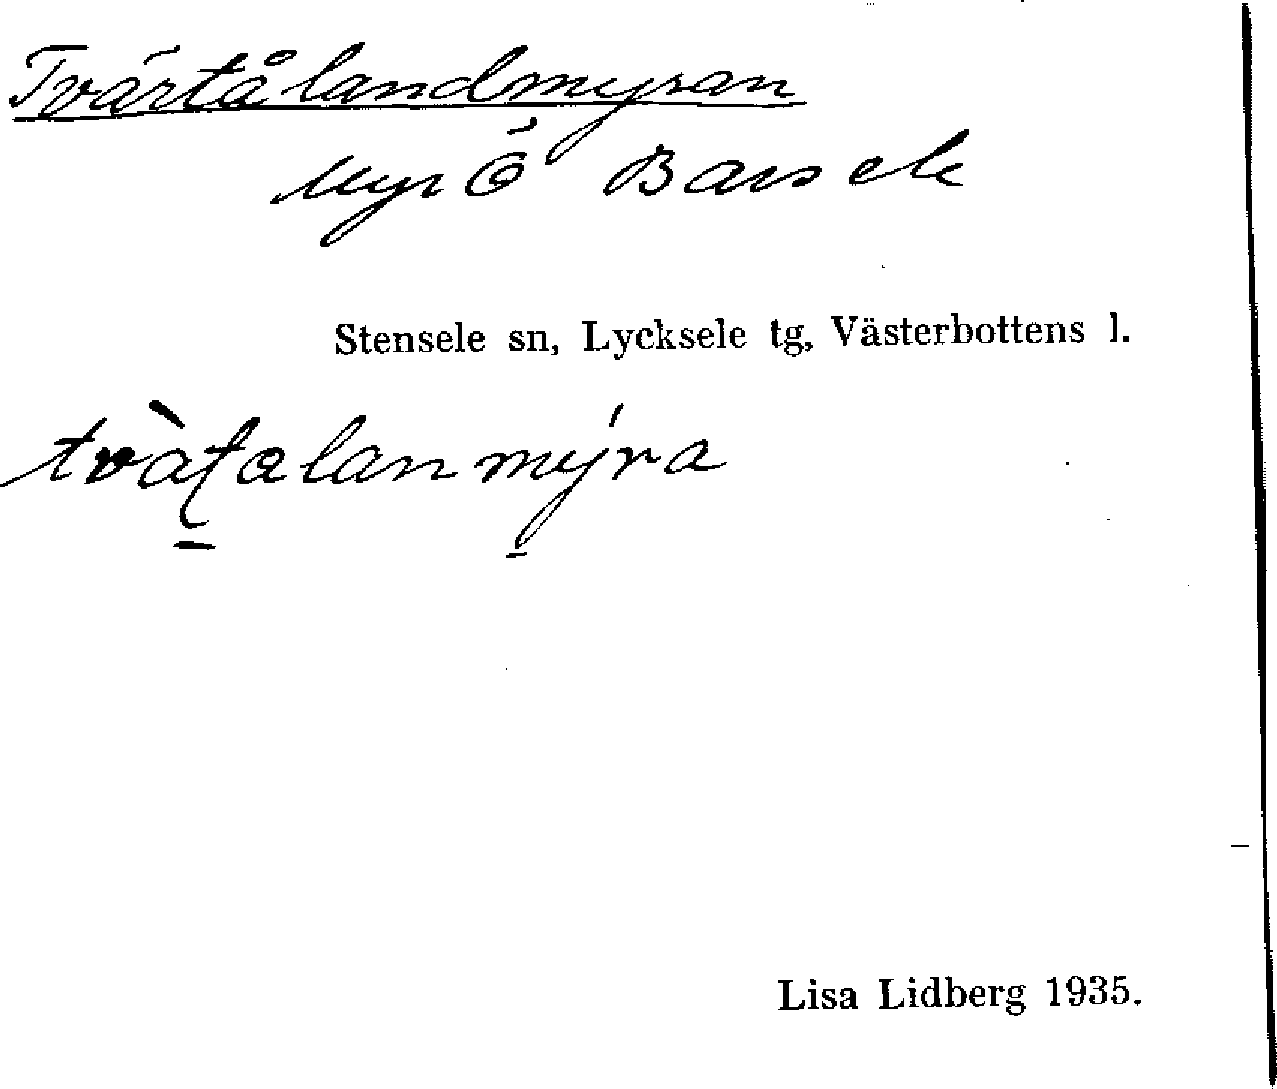 Tvärtålandmyran
Myr Ö Barsele
Stensele sn, Lycksele tg, Västerbottens l.
tvàʈalanmýra
Lisa Lidberg 1935.